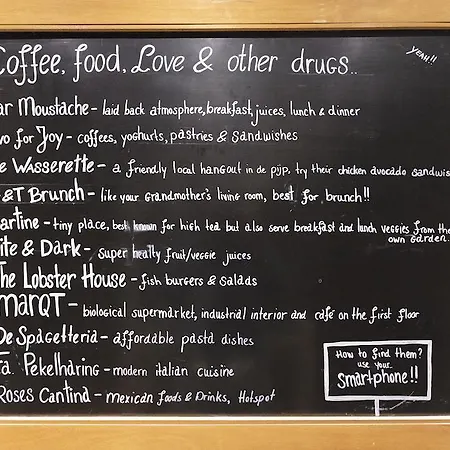 Coffee, food, Love & other drugs..
YEAH!!
ar Moustache - laid back atmosphere, breakfast, juices, lunch & dinner
wo for Joy - coffees, yoghurts, pastries & sandwishes
e Wasserette - a friendly local hangout in de pijp. try their chicken avocado sandwis
&T Brunch - like your grandmother's living room, best for brunch!!
artine - tiny place, best known for high tea but also serve breakfast and lunch. veggies from the
own garden.
ite & Dark - super healty fruit/veggie juices
The Lobster House - fish burgers & salads
MARQT - biological supermarket, industrial interior and café on the first floor
De Spagetteria - affordable pasta dishes
Fa Pekelharing - modern italian cuisine
Roses Cantina - mexican foods & Drinks, Hotspot
How to find them?
use your
Smartphone!!